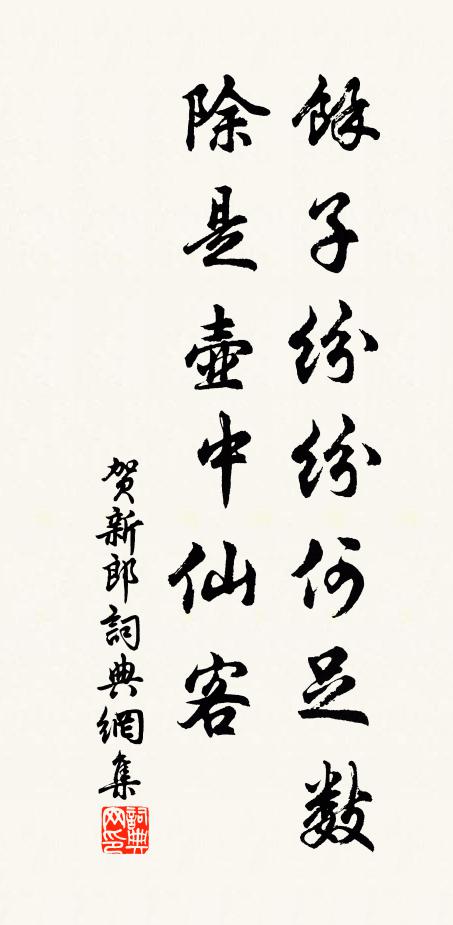 餘子紛紛何足數
除是壺中仙客
贺新郎詞典網集
詞典网印